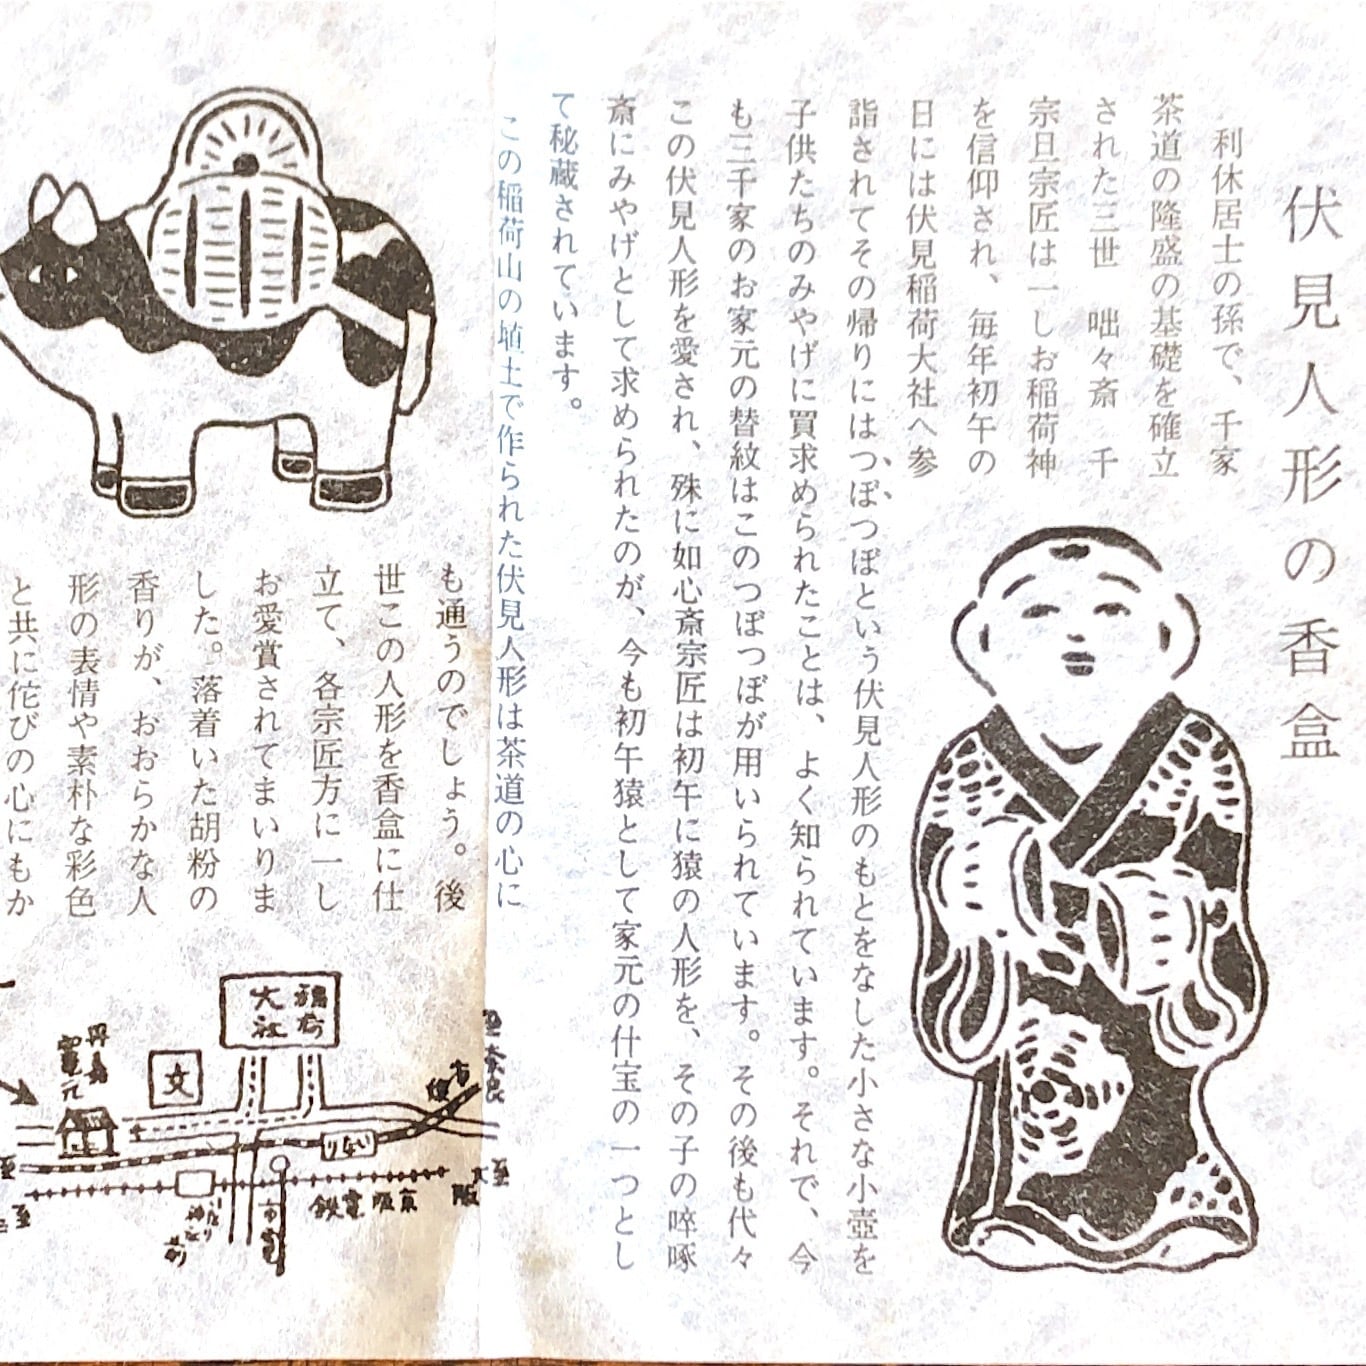 伏見人形の香盒
利休居士の孫で、千家
茶道の隆盛の基礎を確立
された三世　咄々斎　千
宗旦宗匠は一しお稲荷神
を信仰され、毎年初午の
日には伏見稲荷大社へ参
詣されてその帰りにはつぼつぼという伏見人形のもとをなした小さな小壺を
子供たちのみやげに買求められたことは、よく知られています。それで、今
も三千家のお家元の替紋はこのつぼつぼが用いられています。その後も代々
この伏見人形を愛され、殊に如心斎宗匠は初午に猿の人形を、その子の啐啄
斎にみやげとして求められたのが、今も初午猿として家元の什宝の一つとし
て秘蔵されています。
この稲荷山の埴土で作られた伏見人形は茶道の心に
も通うのでしょう。後
世この人形を香盒に仕
立て、各宗匠方に一し
お愛賞されてまいりま
した。落着いた胡粉の
香りが、おおらかな人
形の表情や素朴な彩色
と共に侘びの心にもか
稲荷
大社
文
丹嘉
窯元
至奈良
いなり
京阪電鉄
至大阪
市電